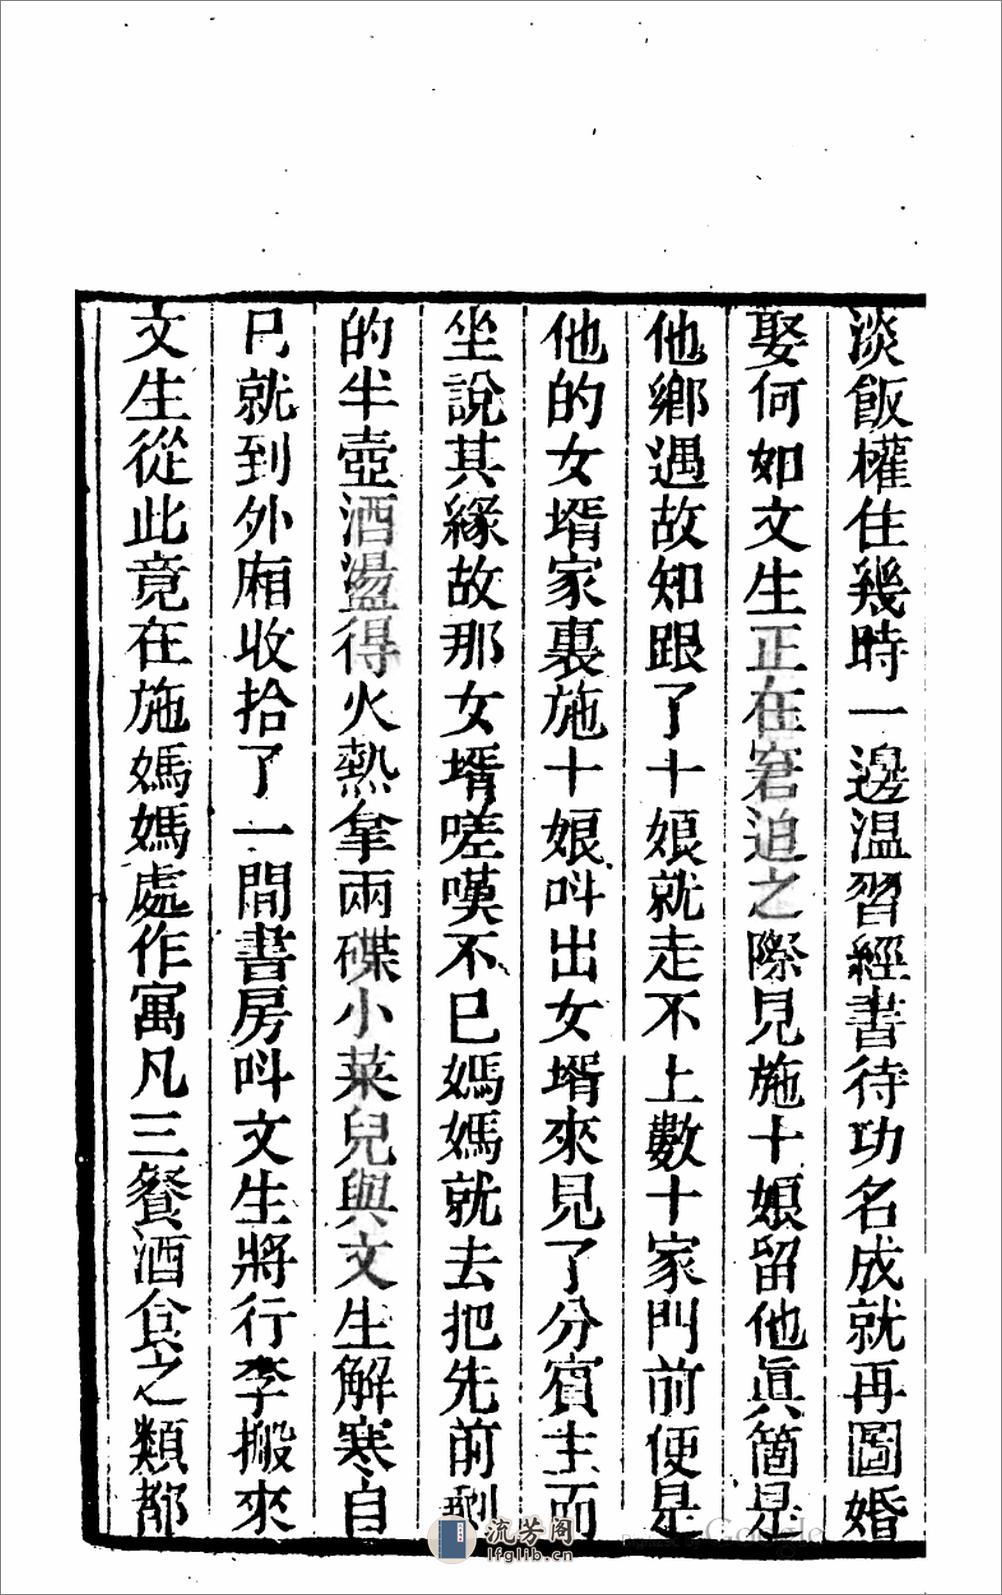 淡飯權住幾時一邊温習經書待功名成就再圖婚
娶何如文生正在窘迫之際見施十娘留他眞箇是
他鄉遇故知跟了十娘就走不上數十家門前便是
他的女壻家裏施十娘呌出女壻來見了分賓主而
坐說其緣故那女壻嗟嘆不已媽媽就去把先前剩
的半壺酒盪得火熱拿兩碟小菜兒與文生解寒自
己就到外廂收拾了一間書房呌文生將行李搬來
文生從此竟在施媽媽處作寓凡三餐酒食之類都
流芳阁
lfglib.cn
Digitized by Google